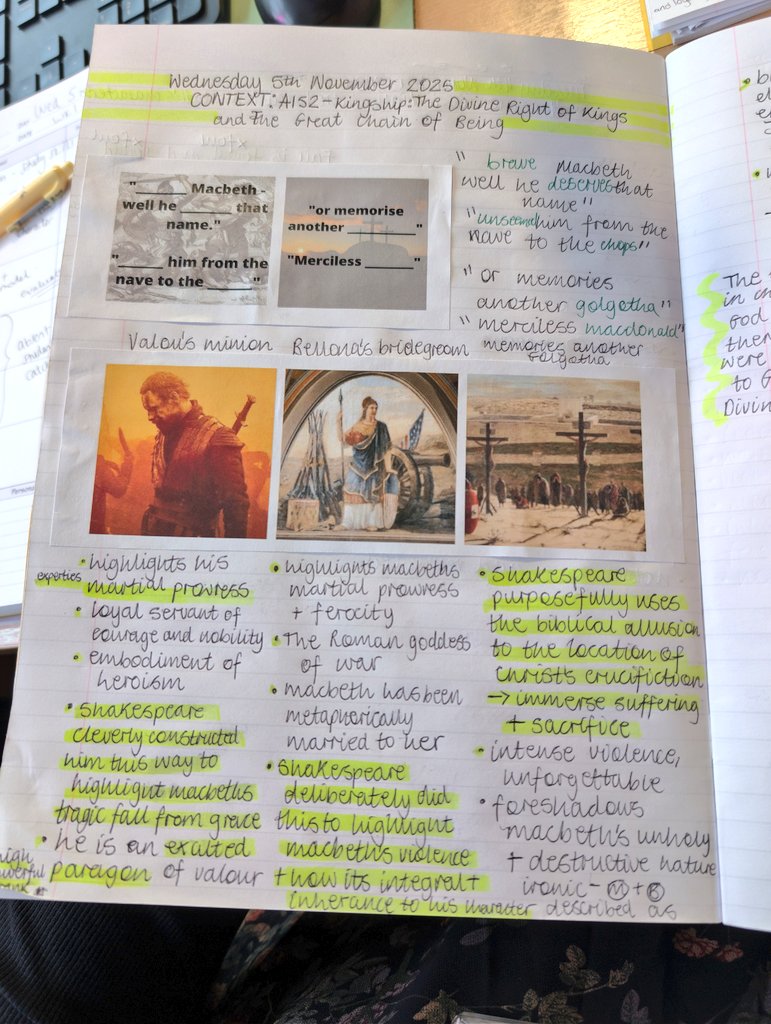 Wednesday 5th November 2025
CONTEXT: A1S2 - Kingship: The Divine Right of Kings
and The Great Chain of Being
"_____ Macbeth -
well he _____ that
name."
"_____ him from the
nave to the _____"
"or memorise
another _____"
"Merciless _____"
" brave Macbeth
well he deserves that
name"
"unseemed him from the
nave to the chops"
" or memories
another golgotha"
" merciless macdonald"
Valour's minion
Bellona's bridegroom
memories another
Golgotha
• highlights his
experties martial prowress
• loyal servant of
courage and nobility
• embodiment of
heroism
• Shakespeare
cleverly constructed
him this way to
highlight macbeths
tragic fall from grace
• he is an exalted
paragon of valour
high
rank
• highlights macbeths
martial prowress
+ ferocity
• The Roman goddess
of war
• macbeth has been
metaphorically
married to her
• Shakespeare
deliberately did
this to highlight
macbeth's violence
+ how its integral +
inherance to his character described as
• Shakespeare
purposefully uses
the biblical allusion
to the location of
Christ's crucifiction
→ immerse suffering
+ sacrifice
• intense violence,
unforgettable
• foreshadows
macbeth's unholy
+ destructive nature
ironic - M + B
The
in
God
then
were
to G
Divin